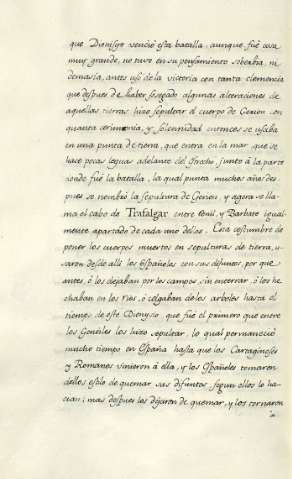 que Dionisyo venció esta batalla, aunque fué cosa
muy grande, no tuvo en su pensamiento soberbia, ni
demasia, antes usó de la victoria con tanta clemencia
que despues de haber sosegado algunas alteraciones de
aquellas tierras hizo sepultar el cuerpo de Gerion con
quanta cerimonia, y solemnidad entonces se usaba
en una punta de tierra, que entra en la mar que se
hace pocas leguas adelante del estrecho, junto á la parte
donde fué la batalla, la qual punta muchos años des
pues se nombró la sepultura de Gerion, y agora se lla-
ma el cabo de Trafalgar entre Conil, y Barbate igual-
mente apartado de cada uno dellos. Esta costumbre de
poner los cuerpos muertos en sepulturas de tierra, u-
saron desde alli los Españoles con sus difuntos, por que
antes, ó los dejaban por los campos sin enterrar, ó los he
chaban en los rios, ó colgaban de los arboles hasta el
tiempo de este Dionysio, que fué el primero que entre
los Gentiles los hizo sepultar, lo qual permaneció
mucho tiempo en España hasta que los Cartagineses
y Romanos vinieron á ella, y los Españoles tomaron
dellos estilo de quemar sus difuntos, segun ellos lo ha-
cian; mas despues los dejaron de quemar, y los tornaron